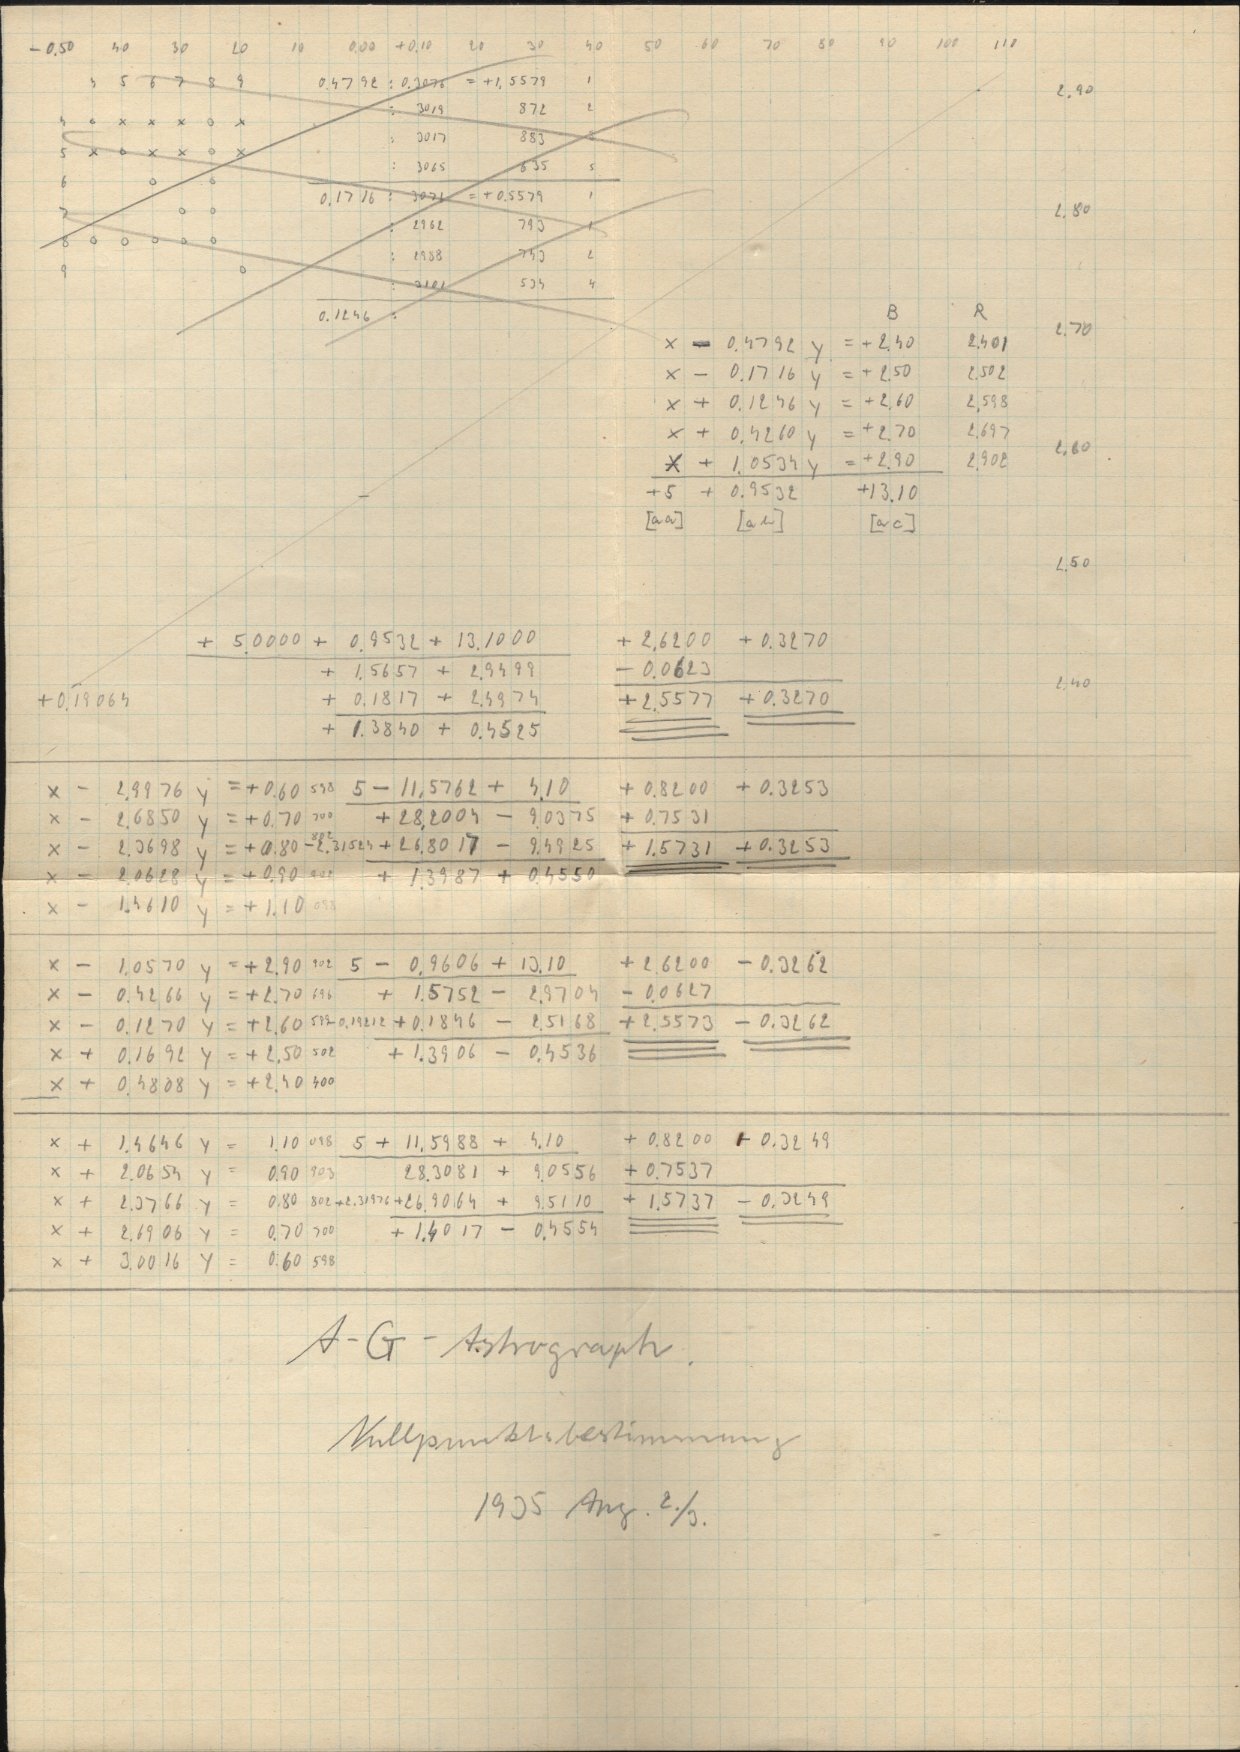 -0,50 40 30 20 10 0,00 +0,10 20 30 40 50 60 70 80 90 100 110
4 5 6 7 8 9 0.4792 : 0.3076 = +1,5579 1
2,90
: 3019 872 2
4 o x x x o x
: 3017 883
5 x o x x o x
: 3065 635 5
6 o o
0,1716 : 3071 = +0.5579 1
7 o o
2,80
: 2962 793 1
8 o o o o o
: 2988 743 2
9 o
: 3101 534 4
0.1246 :
B R
2,70
x - 0,4792 y = +2,40 2,401
x - 0,1716 y = +2,50 2,502
x + 0,1246 y = +2,60 2,598
x + 0,4260 y = +2,70 2,697
2,60
x + 1,0534 y = +2,90 2,902
+5 + 0.9532 +13,10
[aa] [ab] [ac]
2,50
+ 5,0000 + 0,9532 + 13,1000 + 2,6200 + 0,3270
+ 1,5657 + 2,9499 - 0,0623
+0,19064 + 0,1817 + 2,4974 + 2,5577 + 0,3270
2,40
+ 1,3840 + 0,4525
x - 2,9976 y = +0,60 598 5 - 11,5762 + 4,10 + 0,8200 + 0,3253
x - 2,6850 y = +0,70 700 + 28,2004 - 9,0375 + 0,7531
x - 2,3698 y = +0,80 802 -2,31524 + 26,8017 - 9,4925 + 1,5731 + 0,3253
x - 2,0628 y = +0,90 902 + 1,3987 + 0,4550
x - 1,4610 y = +1,10 098
x - 1,0570 y = +2,90 902 5 - 0,9606 + 13,10 + 2,6200 - 0,3262
x - 0,4266 y = +2,70 696 + 1,5752 - 2,9704 - 0,0627
x - 0,1270 y = +2,60 599 -0,19212 + 0,1846 - 2,5168 + 2,5573 - 0,3262
x + 0,1692 y = +2,50 502 + 1,3906 - 0,4536
x + 0,4808 y = +2,40 400
x + 1,4646 y = 1,10 098 5 + 11,5988 + 4,10 + 0,8200 + 0,3249
x + 2,0654 y = 0,90 903 28,3081 + 9,0556 + 0,7537
x + 2,3766 y = 0,80 802 +2,31976 +26,9064 + 9,5110 + 1,5737 - 0,3249
x + 2,6906 y = 0,70 700 + 1,4017 - 0,4554
x + 3,0016 y = 0,60 598
A-G-Astrograph.
Nullpunktsbestimmung
1935 Aug. 2./3.